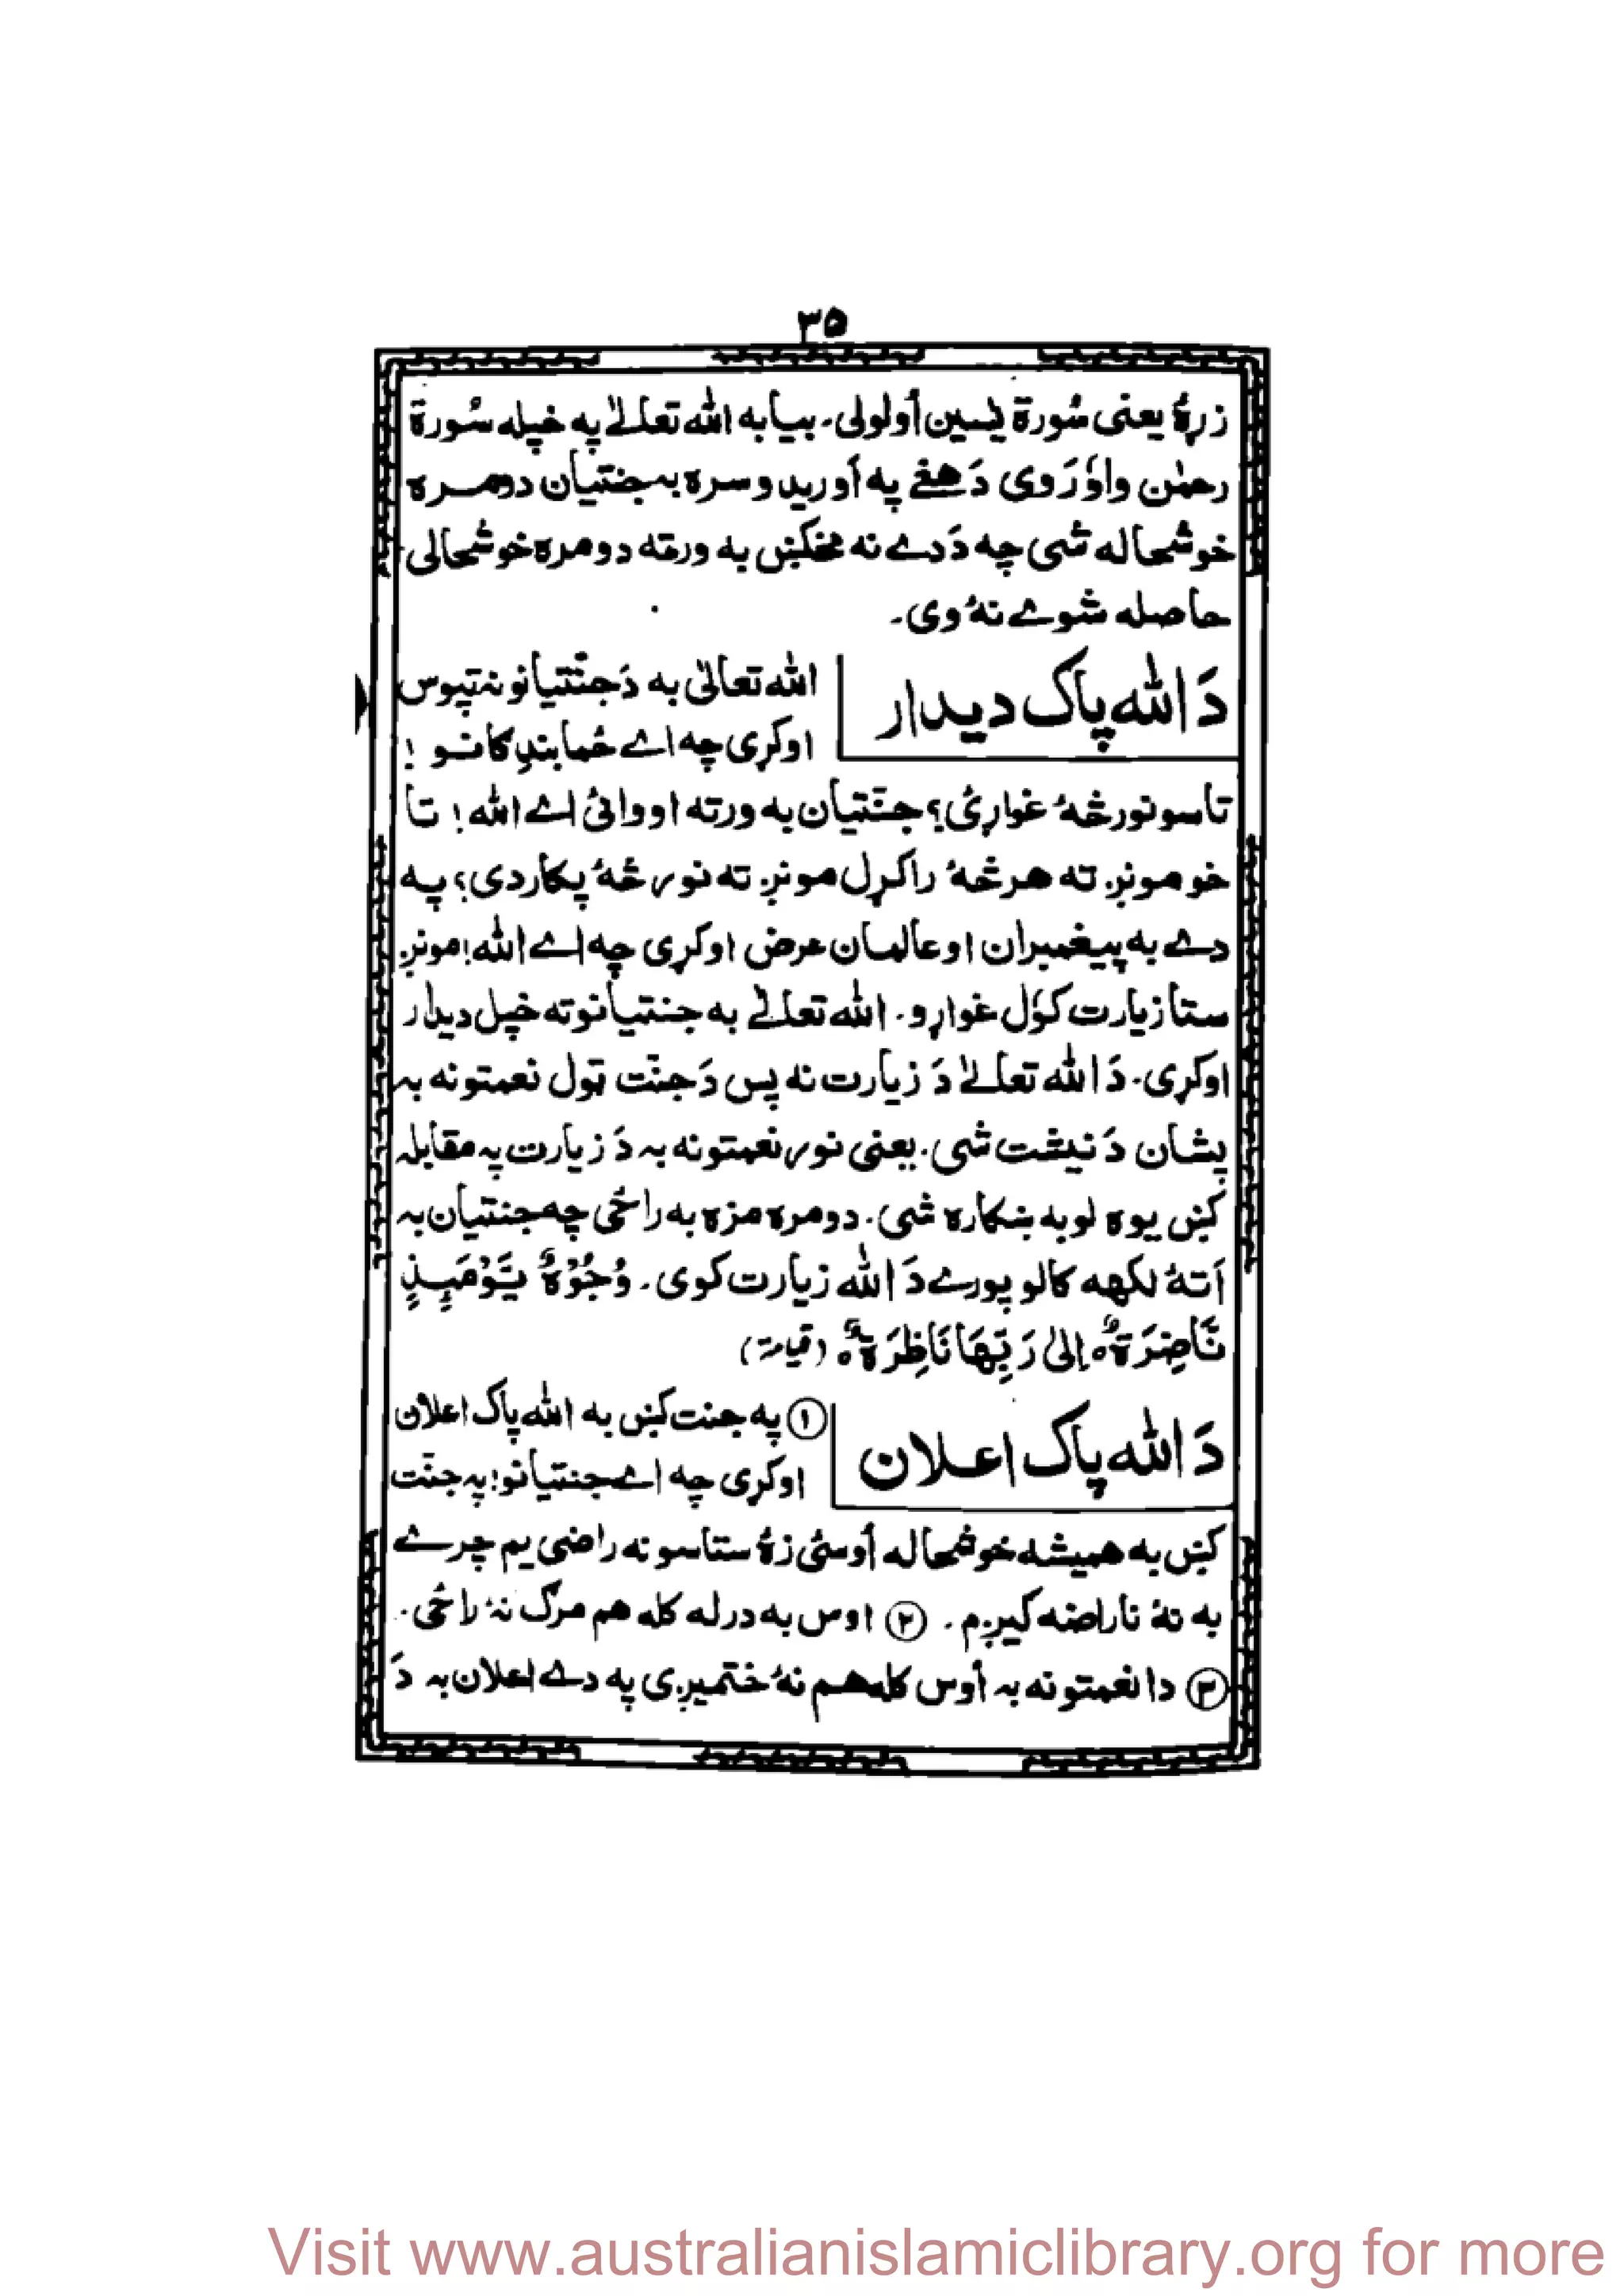 ۳۵
زړۀ یعنی سُورۃ یٰسین اُولولی۔ بیا به الله تعالےٰ په خپله سُورۃ
رحمٰن واوٗرَوی دَ هغے په اُوریدو سره به جنتیان دومره
خوشحاله شی چه دَ دے نه مخکښ به ورته دومره خوشحالی
حاصله شوے نهٔ وی۔
دَ الله پاک دیدار
الله تعالیٰ به دَ جنّتیانو نه تپوس
اوکړی چه اے ځما بندِکانو !
تاسو نور څهٔ غواړئ؟ جنّتیان به ورته اووائی اے الله! تا
خو مونږ ته هر څهٔ راکړل مونږ ته نور څهٔ پکار دی؟ په
دے به پیغمبران او عالمان عرض اوکړی چه اے الله! مونږ
ستا زیارت کوٗل غواړو۔ الله تعالےٰ به جنتیانو ته خپل دیدار
اوکړی۔ دَ الله تعالےٰ دَ زیارت نه پس دَ جنّت ټول نعمتونه به
پشان دَ نیشت شی۔ یعنی نور نعمتونه به دَ زیارت په مقابله
کښ یوه لوبه ښکاره شی۔ دومره مزه به راځی چه جنتیان به
اَتهٔ لکهه کالو پورے دَ الله زیارت کوی۔ وُجُوْهٌ یَّوْمَىِٕذٍ
نَّاضِرَةٌ ۙ اِلٰی رَبِّهَا نَاظِرَةٌ ۚ (قیامۃ)
دَ الله پاک اعلان
① په جنت کښ به الله پاک اعلان
اوکړی چه اے جنتیانو! په جنّت
کښ به همیشه خوشحاله اُوسئ زهٔ ستاسو نه راضی یم چرے
به نهٔ ناراضه کیږم۔ ② اوس به درله کله هم مرګ نهٔ راځی۔
③ دا نعمتونه به اُوس کله هم نهٔ ختمیږی په دے اعلان به دَ
Visit www.australianislamiclibrary.org for more